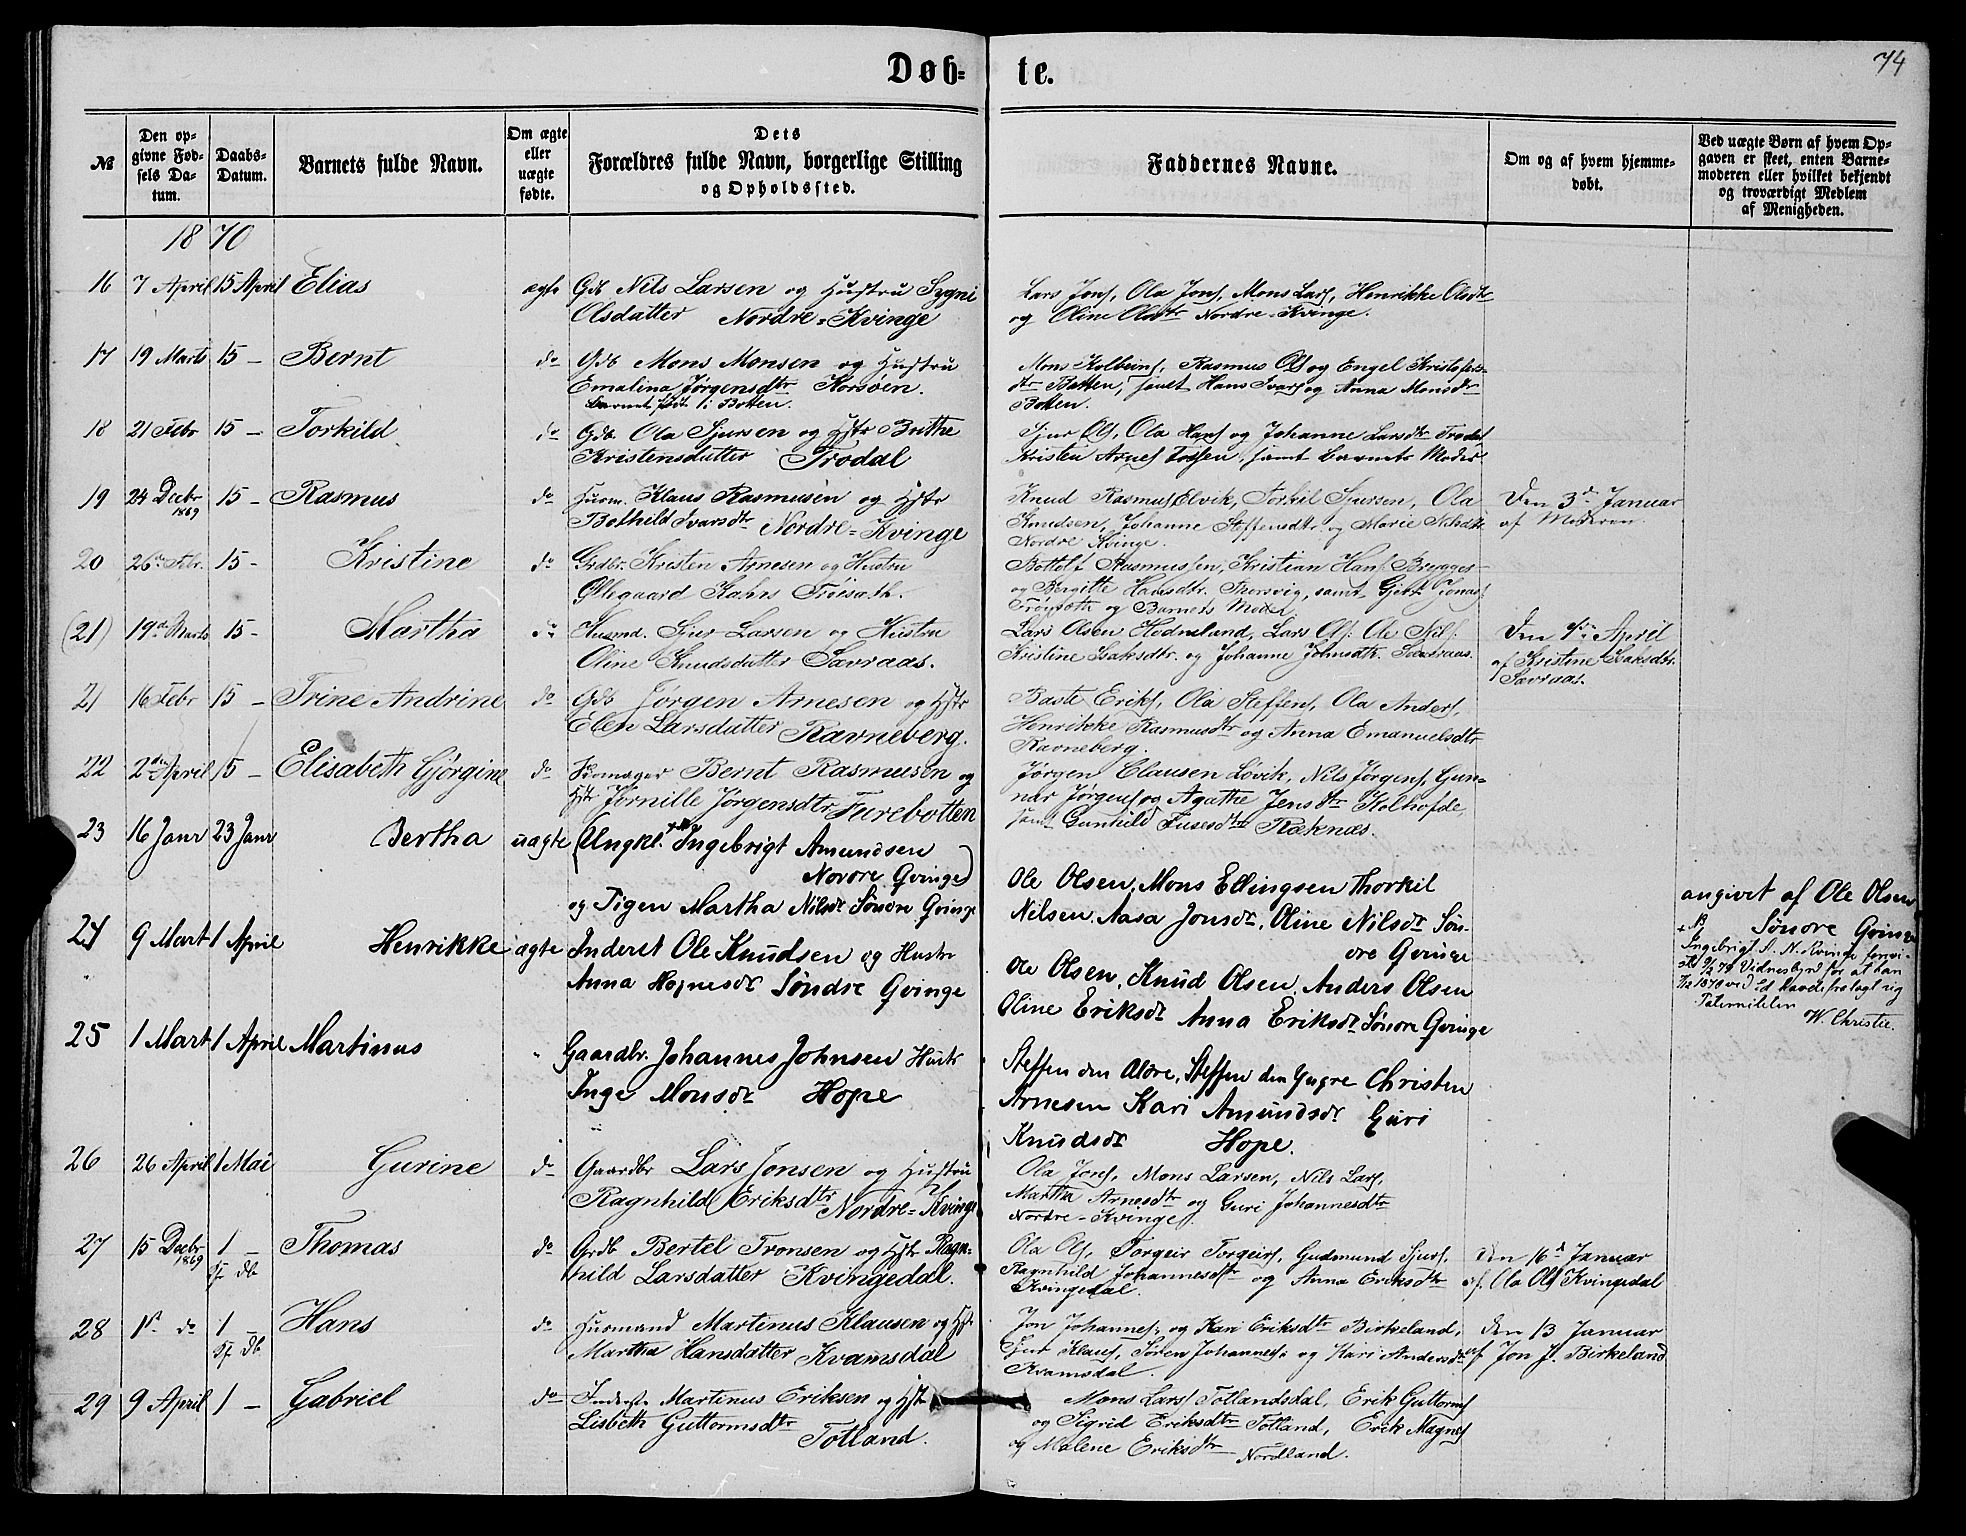 Døb- te.
74
№
Den op-
givne Fød-
sels Da-
tum.
Daabs-
Datum.
Barnets fulde Navn.
Om ægte
eller
uægte
fødte.
Dets
Forældres fulde Navn, borgerlige Stilling
og Opholdssted.
Faddernes Navne.
Om og af hvem hjemme-
døbt.
Ved uægte Børn af hvem Op-
gaven er skeet, enten Barne-
moderen eller hvilket bekjendt
og troværdigt Medlem
af Menigheden.
1870
16 7 April 15 April Elias ægte Gdb Nils Larsen og Hustru Sygni
Olsdatter Nordre-Kvinge
Lars Jons, Ola Jons, Mons Lars, Henrikke Olsdtr
og Oline Olsdtr Nordre-Kvinge.
17 19 Marts 15 - Bernt do Gdb Mons Monsen og Hustru
Emalina Jørgensdtr Korsøen.
Barnet født i Botten.
Mons Kolbeins, Rasmus Ols og Engel Kristofers-
dtr Botten, samt Hans Ivars og Anna Monsdtr
Botten.
18 21 Febr 15 - Torkild do Gdb Ola Sjursen og Hstr Brithe
Kristensdatter Trodal
Sjur Ols, Ola Hans og Johanne Larsdtr Trodal
Kristen Arnes samt Barnets Moder
19 24 Decbr 1869 15 - Rasmus do Husm. Klaus Rasmusen og Hstr
Bothild Ivarsdtr Nordre-Kvinge
Knud Rasmus Elvik, Torkil Sjursen, Ola
Knudsen, Johanne Steffensdtr og Marie Nilsdtr
Nordre Kvinge.
Den 3d Januar
af Moderen.
20 26de Febr. 15- Kristine do Grdbr. Kristen Arnesen og Hustru
Ølegaard Kahrs Trøisath.
Bottolf Rasmussen, Kristian Hans Brygges-
og Bergitte Hansdtr. Thorsvig, samt Gjert Jonas
Trøysath og Barnets Moder
(21) 19de Marts 15- Martha do Husmd. Sjur Larsen og Hustru
Oline Knudsdatter Savraas.
Lars Olsen Hodneland, Lars Ols. Ole Nils.
Kristine Isaksdtr. og Johanne Johnsdtr. Savraas.
Den 1ste April
af Kristine Isaksdtr.
Savraas.
21 16 Febr 15 - Trine Andrine do Gdb Jørgen Arnesen og Hstr
Elen Larsdatter Ravneberg.
Baste Eriks, Ola Steffens, Ola Anders,
Henrikke Rasmusdtr og Anna Emanuelsdtr
Ravneberg.
22 2den April 15 - Elisabeth Gjørgine do Skomager Bernt Rasmusen og
Hstr Jørnille Jørgensdtr Furebotten
Jørgen Clausen Løvik, Nils Jørgens, Gun-
nar Jørgens og Agathe Jensdtr Holhofde,
samt Gunhild Fusesdtr Røknæs.
23 16 Janr 23 Janr Bertha uægte (Ungkl. + Ingebrigt Amundsen
Nordre Qvinge)
og Pigen Martha Nilsdt Søndre Qvinge
Ole Olsen, Mons Ellingsen Thorkil
Nilsen, Aasa Jonsdt, Oline Nilsdt Søn-
dre Qvinge
angivet af Ole Olsen
Søndre Qvinge
+ Ingebrigt A. N. Kvinge
9/2 79 Vidnesbyrd for at han
7/12 1878 ved Ed havde fralagt sig
Paterniteten
W. Christie.
24 9 Mart 1 April Henrikke ægte Inderst Ole Knudsen og Hustr
Anna Hognesdt Søndre Qvinge
Ole Olsen, Knud Olsen, Anders Olsen
Oline Eriksdt Anna Eriksdt Søndre Qvinge
25 1 Mart 1 April Martinus " Gaardbr. Johannes Johnsen Hustr
Inge Monsdt Hope
Steffen den Ældre, Steffen den Yngre Christen
Arnesen Kari Amundsdt Guri
Knudsdt Hope.
26 26 April 1 Mai Gurine do Gaardbr Lars Jonsen og Hustru
Ragnhild Eriksdtr Nordre-Kvinge
Ola Jons, Mons Larsen, Nils Lars,
Martha Arnesdtr og Guri Johannesdtr
Nordre-Kvinge.
27 15 Decbr 1869 1 - Thomas do Grdb Bertel Tronsen og Hstr Ragn-
hild Larsdatter Kvingedal.
Ola Ols, Torgeir Torgeirs, Gudmund Sjurs,
Ragnhild Johannesdtr og Anna Eriksdtr
Kvingedal.
den 16d Januar
af Ola Ols Kvingedal
28 1st do 1 - Hans do Husmand Martinus Klausen og Hst
Martha Hansdatter Kvamsdal
Jon Johannes, og Kari Eriksdtr Birkeland,
Sjur Klaus, Søren Johannes, og Kari Andersdtr
Kvamsdal.
den 13 Januar
af Jon J. Birkeland
29 9 April 1 - Gabriel do Inderste Martinus Eriksen og Hst
Lisbeth Guttormsdtr
Totland.
Mons Lars Totlandsdal, Erik Guttorms
og Sigrid Eriksdtr Totland, Erik Magnes
og Malene Eriksdtr Nordland.